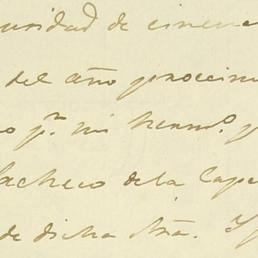 uridad de cincuen
del año procsim
o pr. mi hermo. p
acheco de la Cape
de dicha Sra. Y p